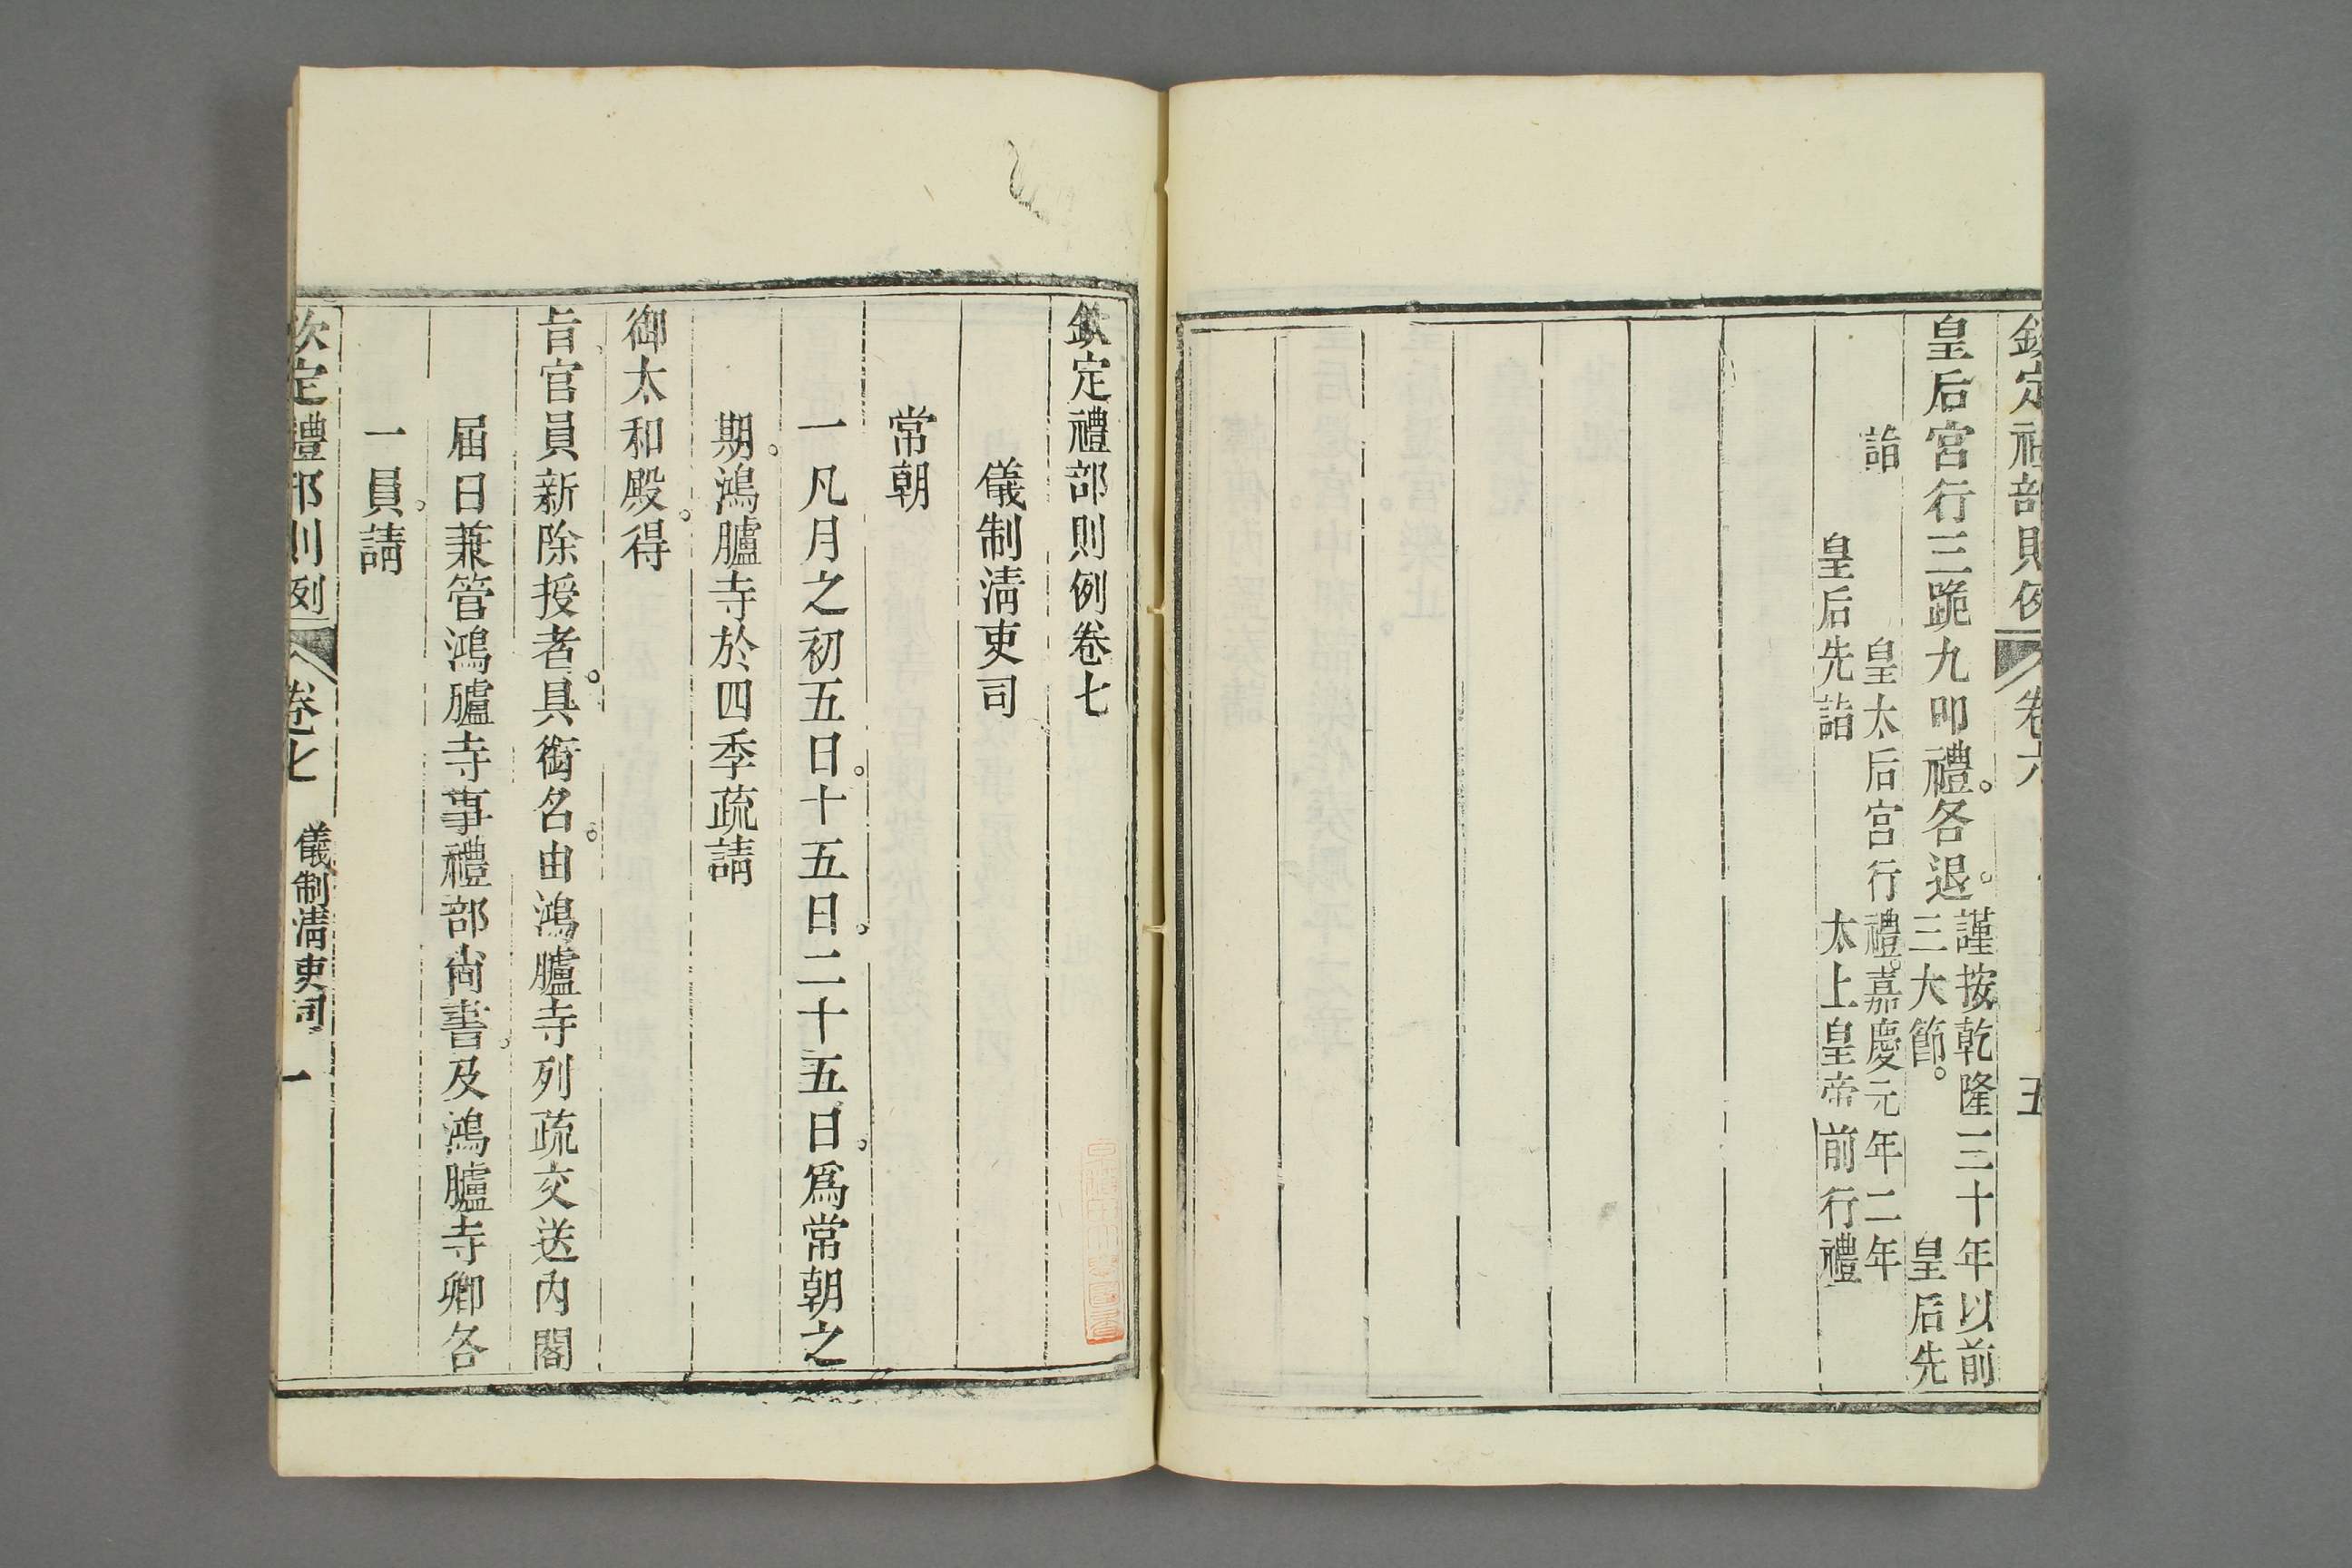 欽定禮部則例 卷六 五
皇后宮行三跪九叩禮。各退。謹按乾隆三十年以前
三大節。 皇后先
詣 皇太后宮行禮。嘉慶元年二年
皇后先詣 太上皇帝前行禮
欽定禮部則例卷七
儀制淸吏司
常朝
一凡月之初五日。十五日。二十五日。爲常朝之
期。鴻臚寺於四季疏請
御太和殿。得
旨。官員新除授者。具銜名。由鴻臚寺列疏交送內閣
届日兼管鴻臚寺事禮部尙書。及鴻臚寺卿各
一員。請
欽定禮部則例 卷七 儀制淸吏司 一